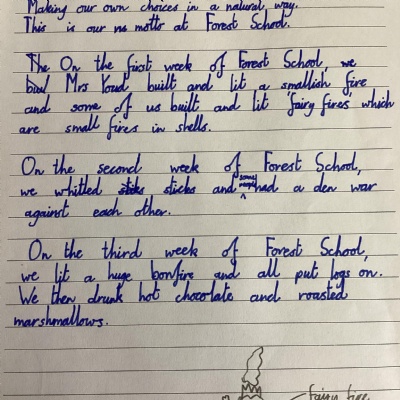 Making our own choices in a natural, way.
This is our no motto at Forest School.
The On the first week of Forest School, we
buil Mrs Youd built and lit a smallish fire
and some of us built and lit fairy fires which
are small fires in shells.
On the second week of Forest School,
we whittled sticks and some people had a den war
against each other.
On the third week of Forest School,
we lit a huge bonfire and all put logs on.
We then drunk hot chocolate and roasted
marshmallows.
fairy fire